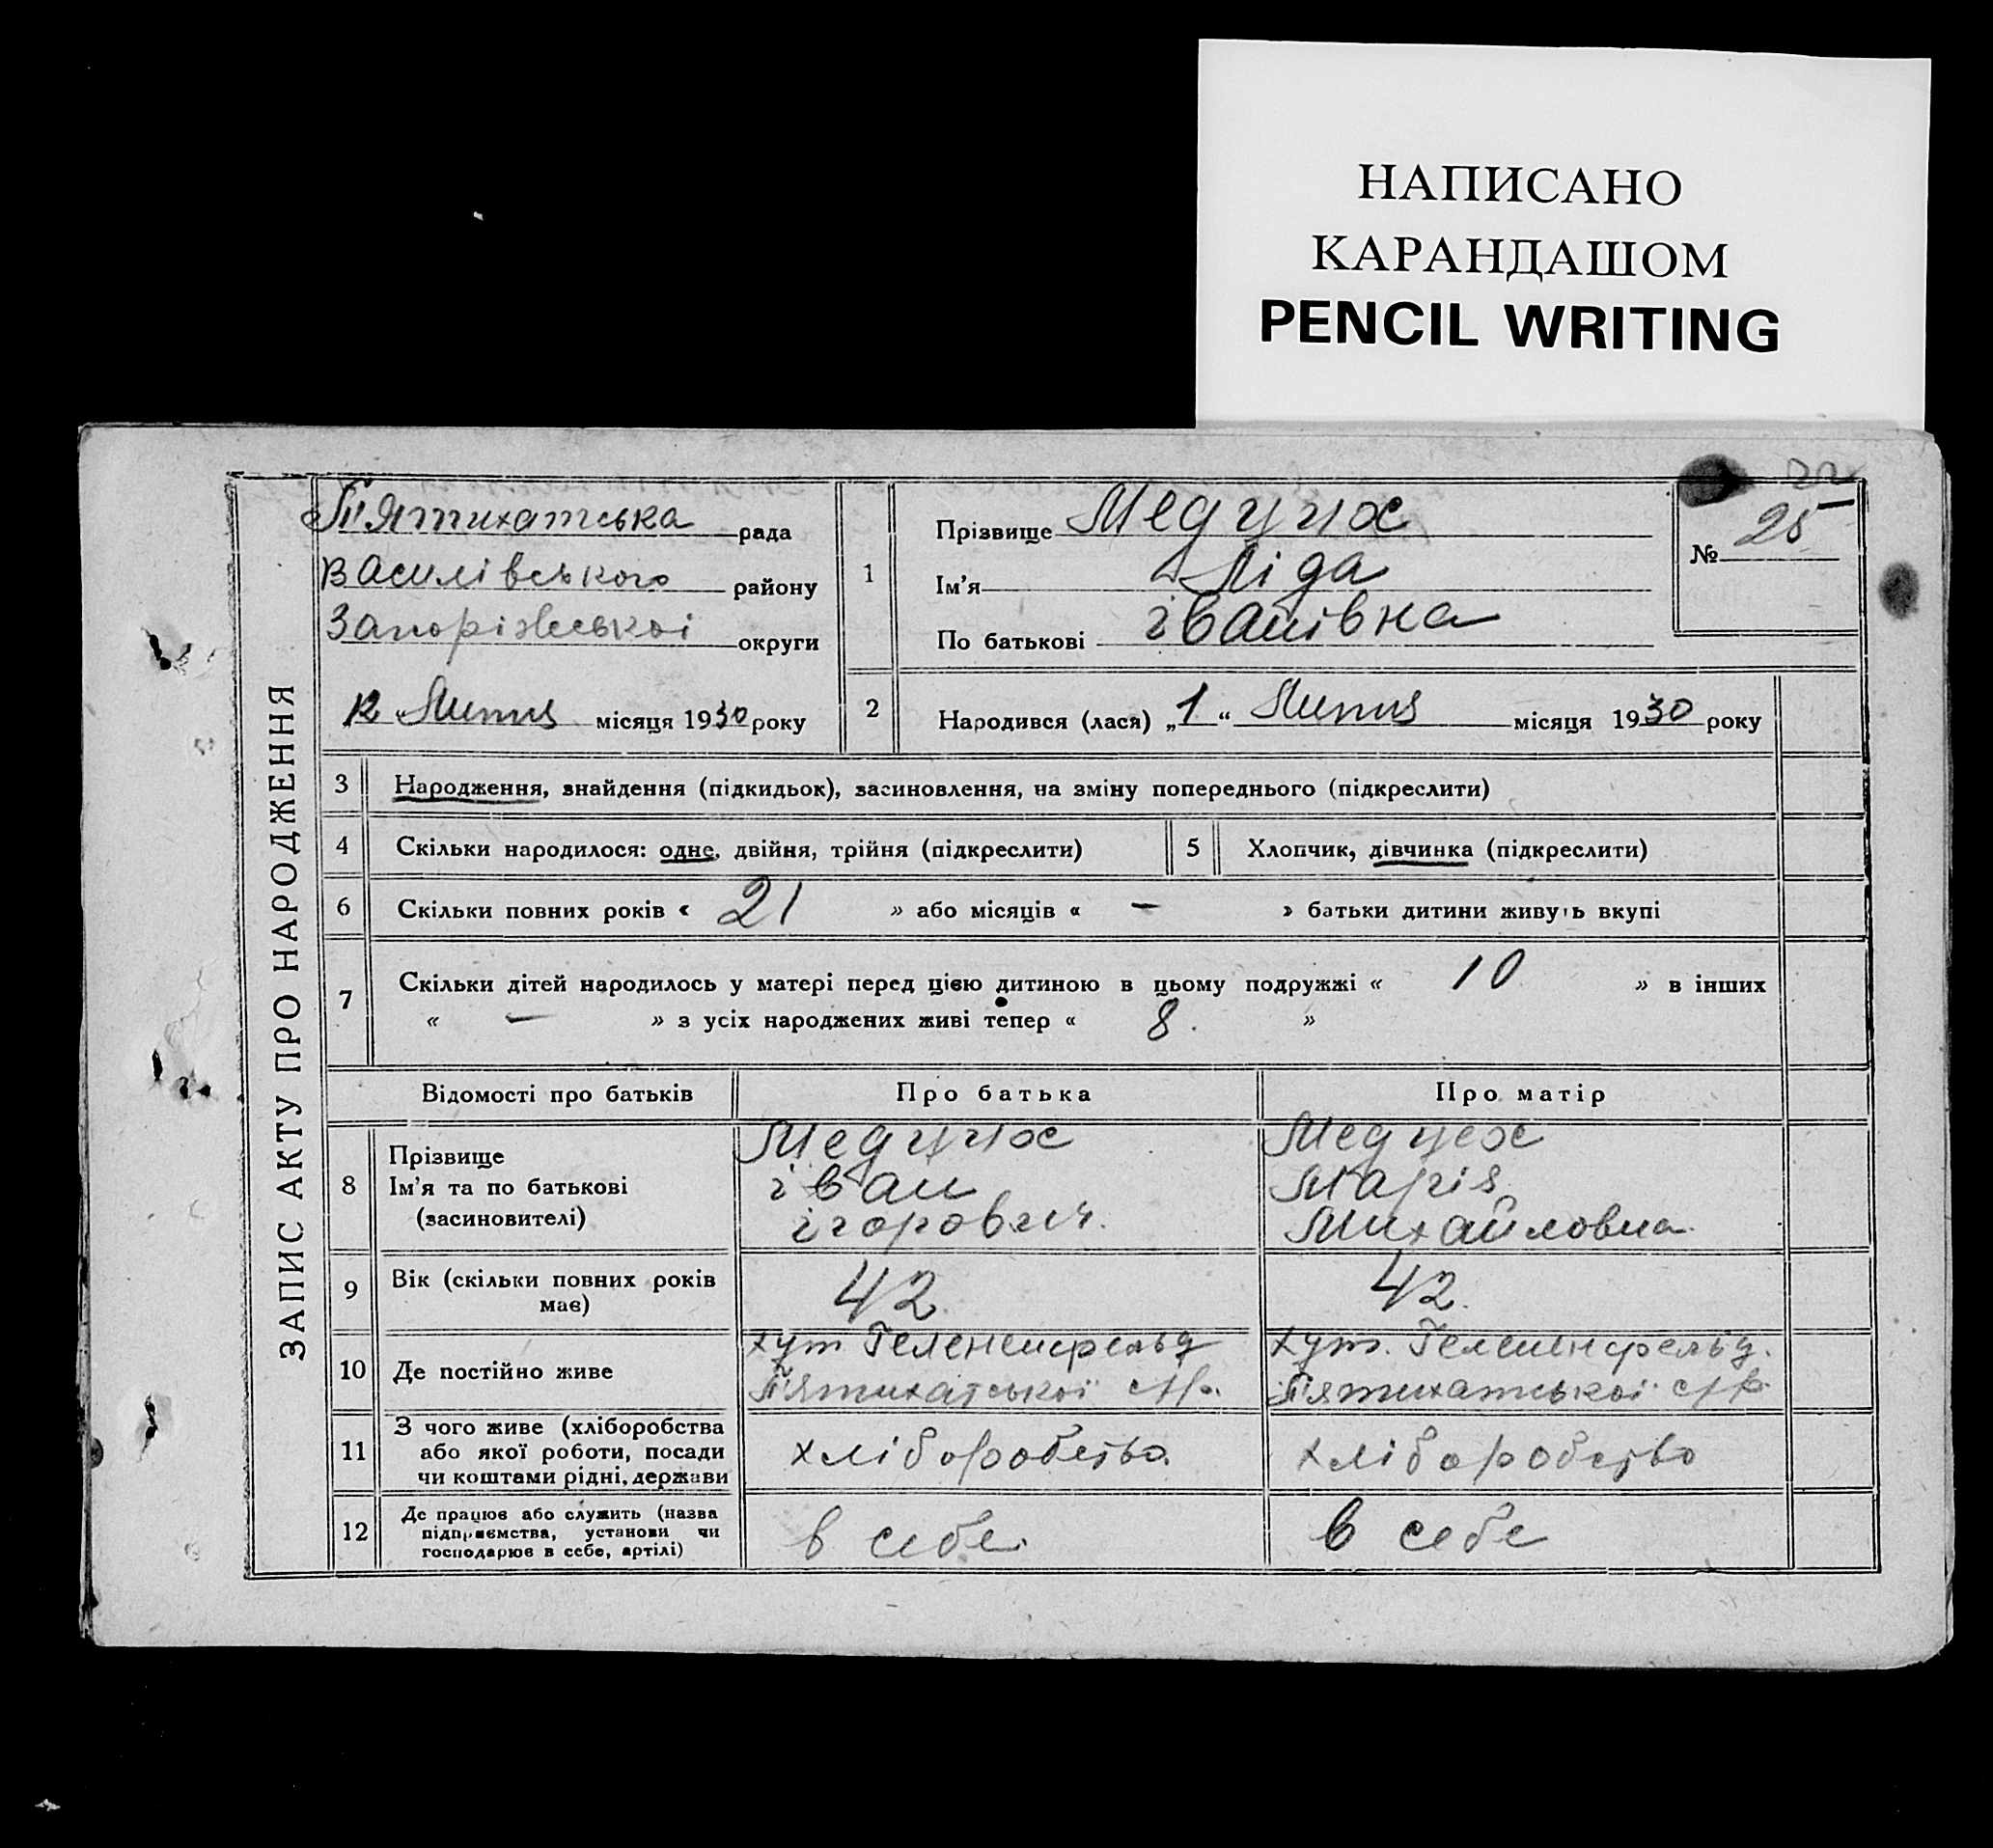 НАПИСАНО
КАРАНДАШОМ
PENCIL WRITING
22
ЗАПИС АКТУ ПРО НАРОДЖЕННЯ
П'ятихатська рада
Василівського району
Запоріжської округи
12 Липня місяця 1930 року
1
Прізвище
Ім'я Ліда
По батькові іванівна
№ 25
2 Народився (лася) „1“ Липня місяця 1930 року
3 Народження, знайдення (підкидьок), засиновлення, на зміну попереднього (підкреслити)
4 Скільки народилося: одне, двійня, трійня (підкреслити) 5 Хлопчик, дівчинка (підкреслити)
6 Скільки повних років « 21 » або місяців « – » батьки дитини живуть вкупі
7 Скільки дітей народилось у матері перед цією дитиною в цьому подружжі « 10 » в інших
« – » з усіх народжених живі тепер « 8. »
Відомості про батьків Про батька Про матір
8 Прізвище
Ім'я та по батькові іван Марія
(засиновителі) ігорович. Михайловна
9 Вік (скільки повних років має) 42. 42.
10 Де постійно живе хут хут.
П'ятихатської с/р. П'ятихатської с/р.
11 З чого живе (хліборобства
або якої роботи, посади хліборобство хліборобство
чи коштами рідні, держави
12 Де працює або служить (назва
підприємства, установи чи в себе. в себе
господарює в себе, артілі)